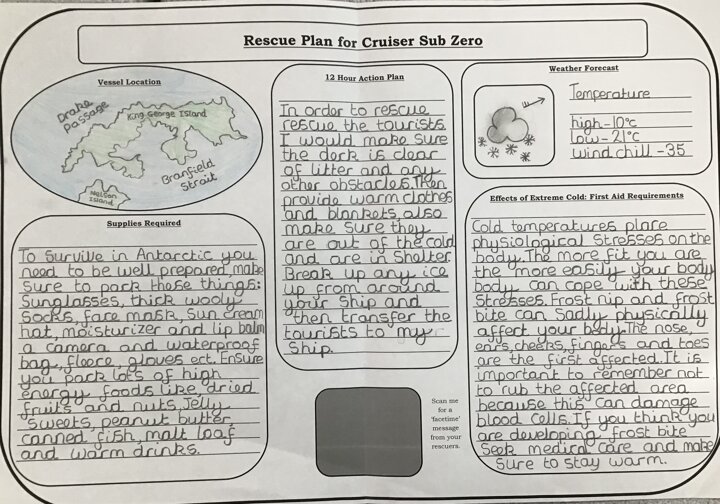 Rescue Plan for Cruiser Sub Zero
Vessel Location
Drake
Passage
King George Island
Branfield
Strait
Nelson
Island
Supplies Required
To survive in Antarctic you
need to be well prepared, make
sure to pack these things:
Sunglasses, thick wooly
socks, face mask, Sun cream
hat, moisturizer and lip balm
a camera and waterproof
bag, fleece, gloves ect. Ensure
you pack lots of high
energy foods like dried
fruits and nuts, Jelly
Sweets, peanut butter
canned fish, malt loaf
and warm drinks.
12 Hour Action Plan
In order to rescue
rescue the tourists
I would make sure
the deck is clear
of litter and any
other obstacles. Then
provide warm clothes
and blankets, also
make sure they
are out of the cold
and are in shelter
Break up any ice
up from around
your ship and
then transfer the
tourists to my
ship.
Scan me
for a
'facetime'
message
from your
rescuers.
Weather Forecast
Temperature
high -10°c
low -21°c
wind chill -35
Effects of Extreme Cold: First Aid Requirements
Cold temperatures place
physiological stresses on the
body. The more fit you are
the more easily your body
body can cope with these
stresses. Frost nip and frost
bite can sadly physically
affect your body. The nose,
ears, cheeks, fingers and toes
are the first affected. It is
important to remember not
to rub the affected area
because this can damage
blood cells. If you think you
are developing frost bite
Seek medical care and make
Sure to stay warm.